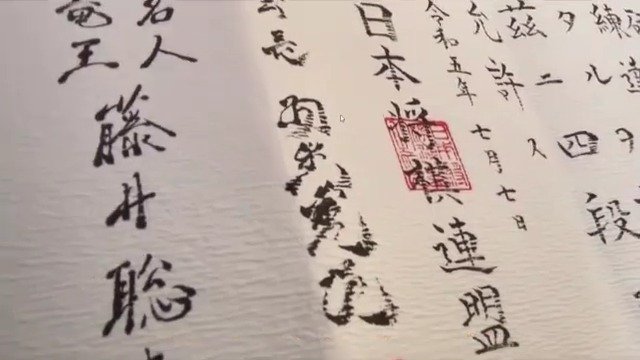 練達
タルヲ
茲ニ四段
允許ス
令和五年七月七日
日本将棋連盟
会長 羽生善治
名人
竜王
藤井聡